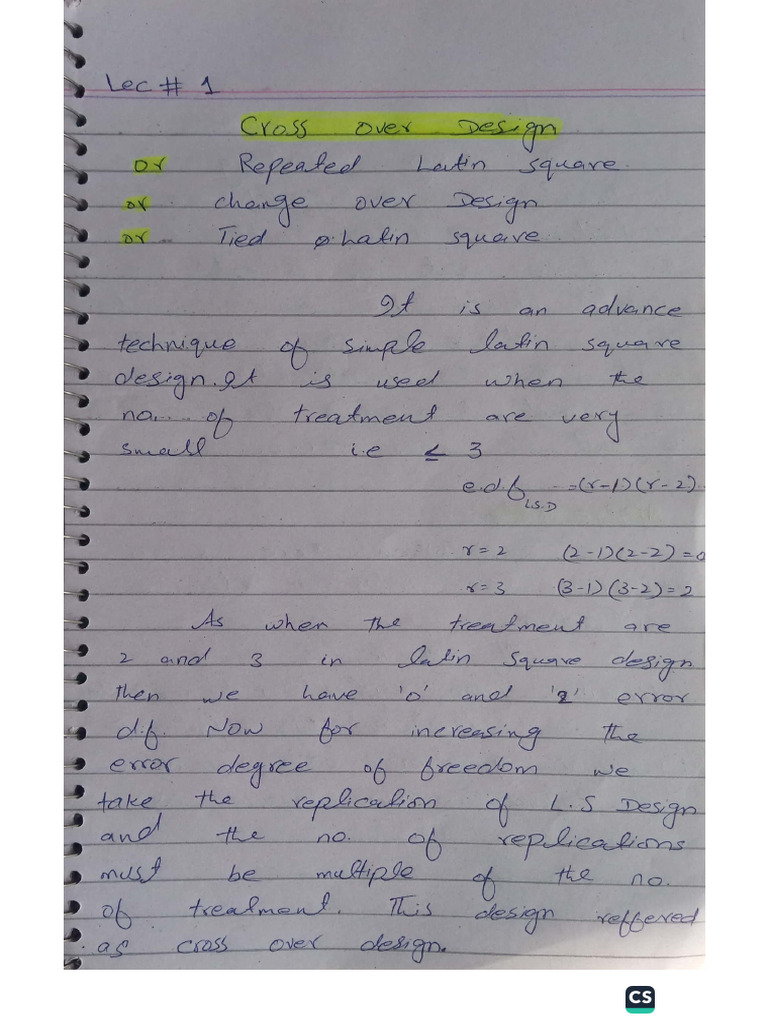 Lec # 1
Cross over Design
or Repeated Latin square.
or change over Design
or Tied Latin square.
It is an advance
technique of simple latin square
design. It is used when the
no. of treatment are very
small i.e ≤ 3
e.d.f L.S.D =(r-1)(r-2)
r=2 (2-1)(2-2)=0
r=3 (3-1)(3-2)=2
As when the treatment are
2 and 3 in latin square design
then we have '0' and '2' error
d.f. Now for increasing the
error degree of freedom we
take the replication of L.S Design
and the no. of replications
must be multiple of the no.
of treatment. This design reffered
as cross over design.
CS